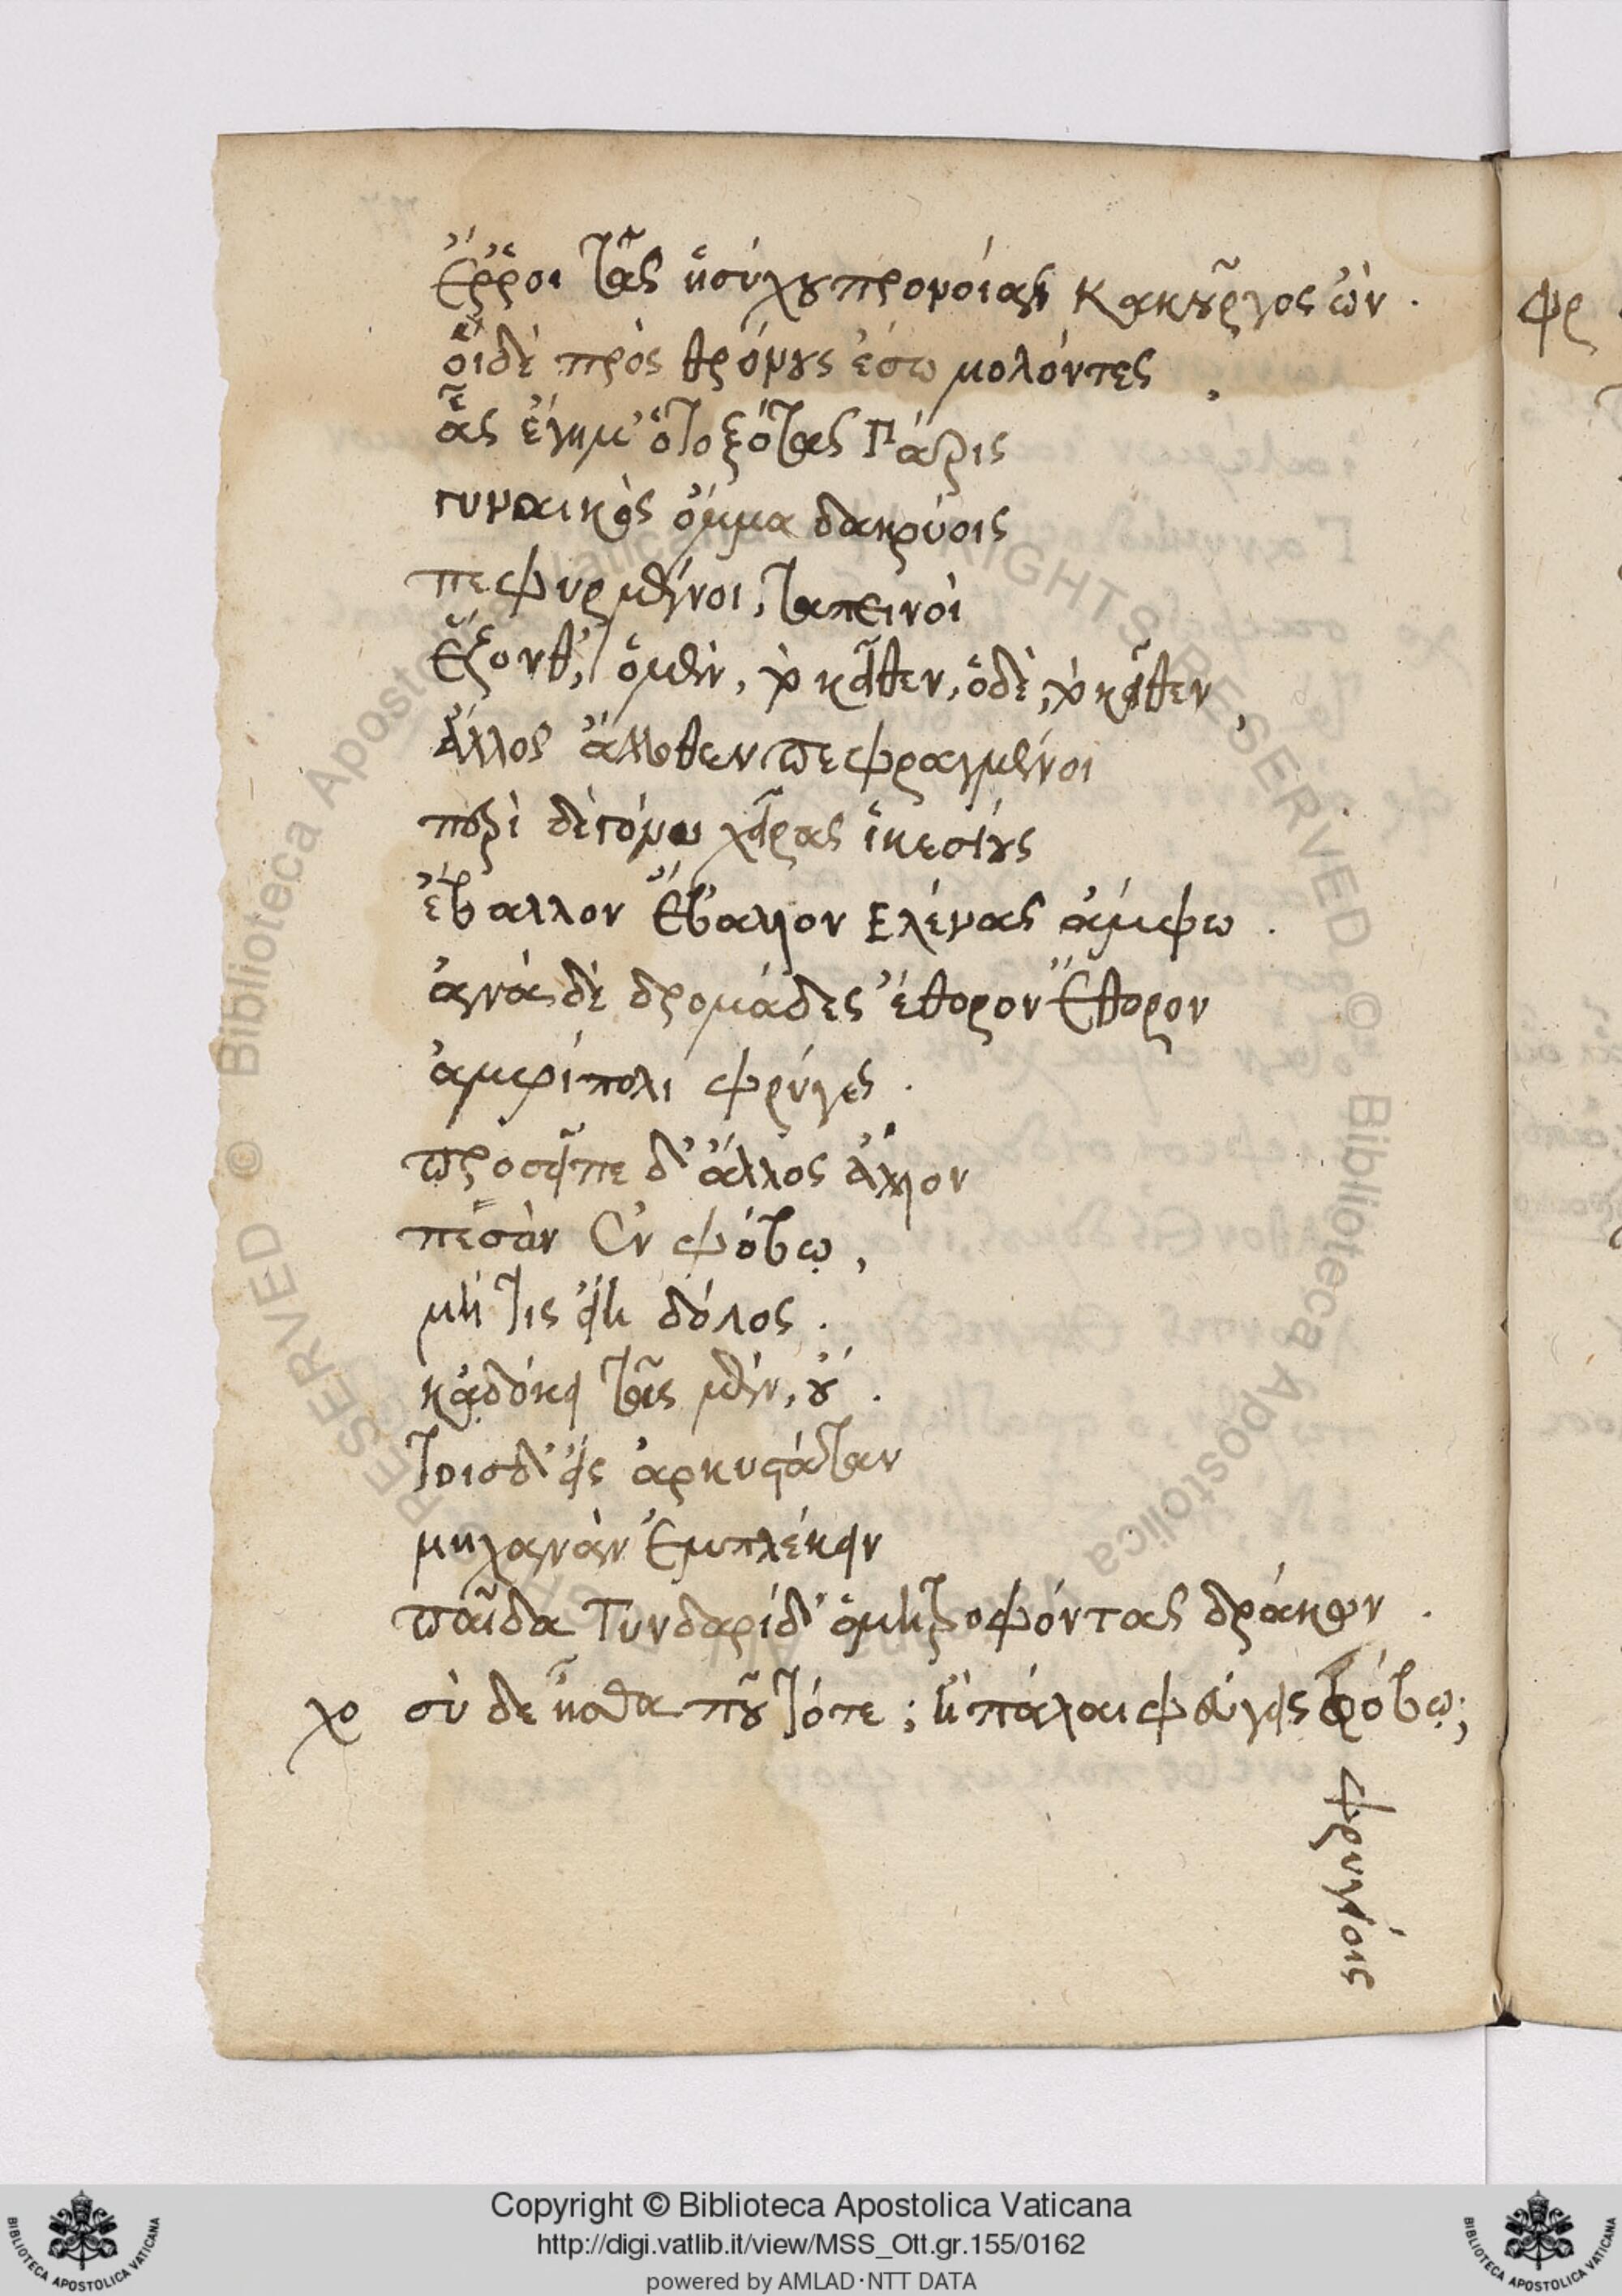 ἔῤῥοι τᾶς ἡσύχου προνοίας κακοῦργος ὤν .
οἱ δὲ πρὸς θρόνους ἔσω μολόντες ,
ἇς ἔγημ' ὁ τοξότας Πάρις
γυναικὸς ὄμμα δακρύοις
πεφυρμένοι, ταπεινοὶ
ἕζονθ', ὁ μὲν, τὸ κεῖθεν, ὁ δὲ, τὸ κεῖθεν ,
ἄλλος ἄλλοθεν πεφραγμένοι
περὶ δὲ γόνυ χεῖρας ἱκεσίους
ἔβαλλον ἔβαλλον Ελένας ἄμφω .
ἀνὰ δὲ δρομάδες ἔθορον ἔθορον
ἀμφίπολι φρύγες .
προσεῖπε δ' ἄλλος ἄλλον
πεσὼν ἐν φόβῳ ,
μή τις εἴη δόλος .
κᾀδόκει τοῖς μὲν, οὔ .
τοῖσδ' εἰς ἀρκυστάταν
μηχανὰν ἐμπλέκειν
παῖδα Τυνδαρίδ' ὁ μητροφόντας δράκων .
χο σὺ δε ἦσθα ποῦ τότε ; ἢ πάλαι φεύγεις φόβῳ ;
φρυγίοις
φρ
Copyright © Biblioteca Apostolica Vaticana
http://digi.vatlib.it/view/MSS_Ott.gr.155/0162
powered by AMLAD·NTT DATA
BIBLIOTECA APOSTOLICA VATICANA
BIBLIOTECA APOSTOLICA VATICANA